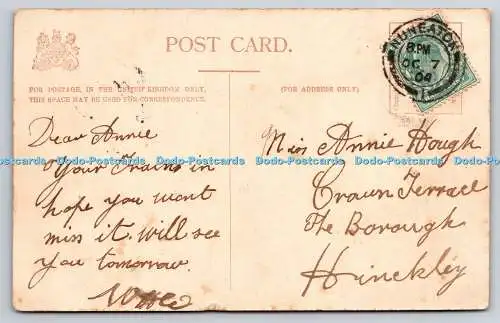 POST CARD.
FOR POSTAGE, IN THE UNITED KINGDOM ONLY,
THIS SPACE MAY BE USED FOR CORRESPONDENCE.
(FOR ADDRESS ONLY.)
NUNEATON
8 PM
OC 7
04
Dear Annie
Your Trains in
hope you wont
miss it. will see
you tomorrow.
Miss Annie Hough
Crown Terrace
The Borough
Hinckley
Dodo-Postcards Dodo-Postcards Dodo-Postcards Dodo-Postcards Dodo-Postcards